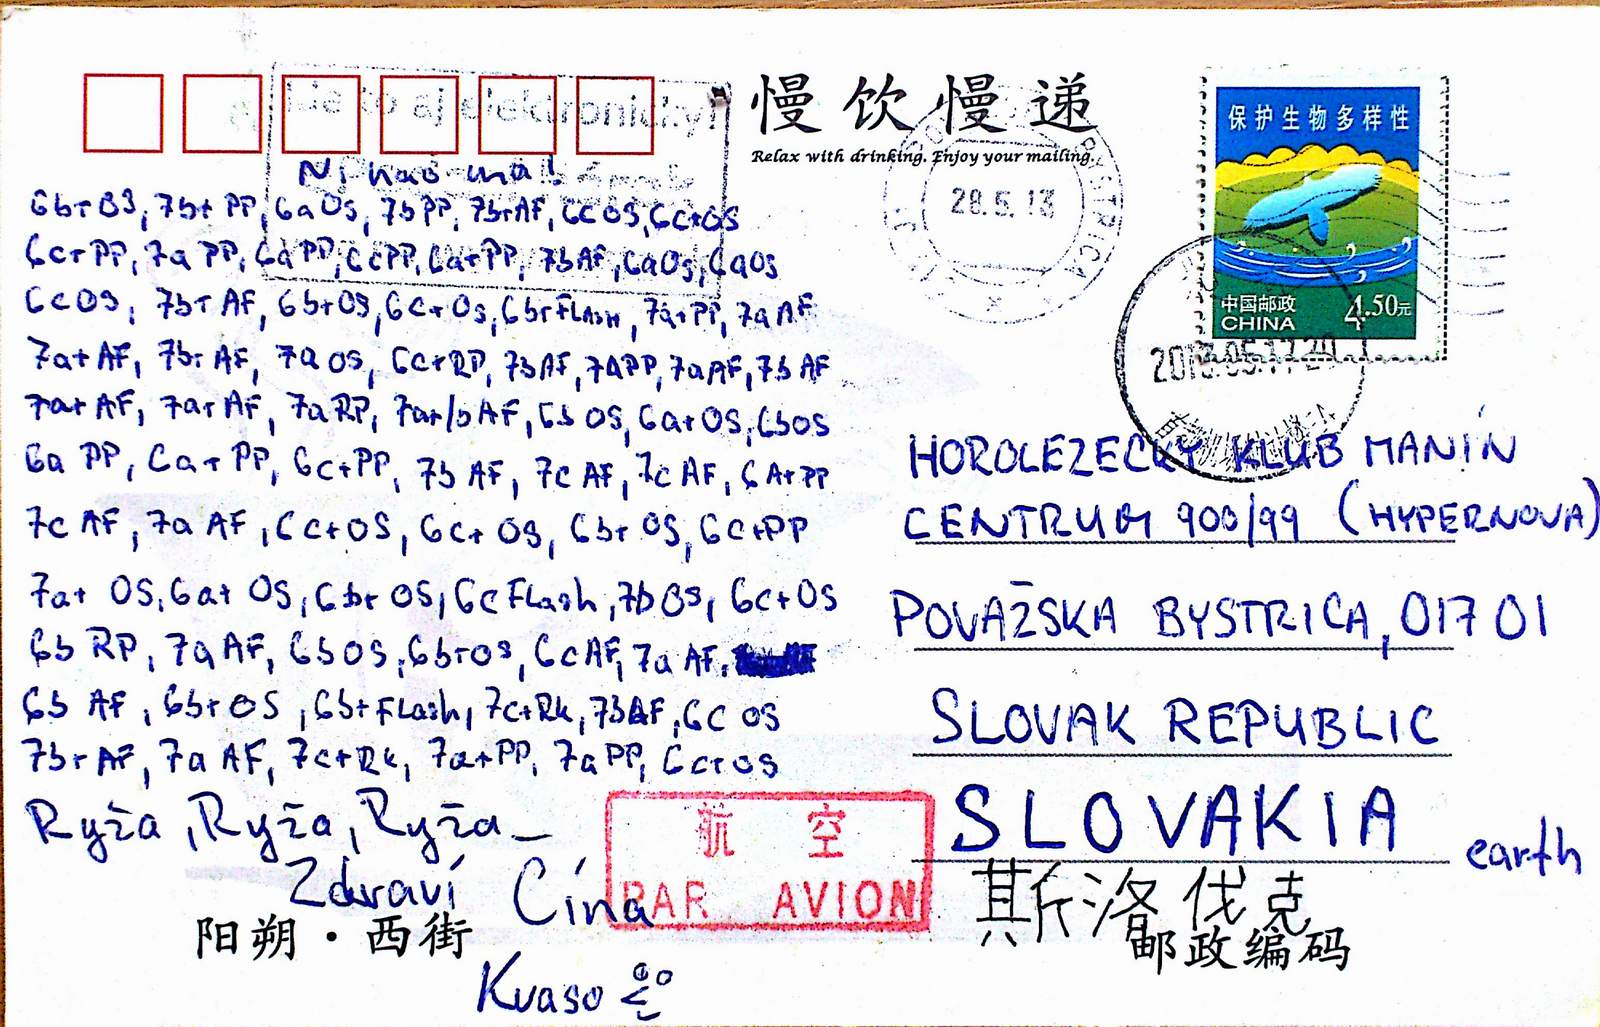 Ide to aj elektronicky!
慢饮慢递
Relax with drinking. Enjoy your mailing.
保护生物多样性
中国邮政
CHINA
4.50元
28.5.13
Ni hao ma!
6b+ OS, 7b+ PP, 6a OS, 7b PP, 7b+ AF, 6c OS, 6c+ OS
6c+ PP, 7a PP, 6a PP, 6c PP, 6a+ PP, 7b AF, 6a OS, 6a OS
6c OS, 7b+ AF, 6b+ OS, 6c+ OS, 6b+ FLASH, 7a+ PP, 7a AF
7a+ AF, 7b+ AF, 7a OS, 6c+ RP, 7b AF, 7A PP, 7a AF, 7b AF
7a+ AF, 7a+ AF, 7a RP, 7a+/b AF, 6b OS, 6a+ OS, 6b OS
6a PP, 6a+ PP, 6c+ PP, 7b AF, 7c AF, 7c AF, 6A+ PP
7c AF, 7a AF, 6c+ OS, 6c+ OS, 6b+ OS, 6c+ PP
7a+ OS, 6a+ OS, 6b+ OS, 6c FLash, 7b OS, 6c+ OS
6b RP, 7a AF, 6b OS, 6b+ OS, 6c AF, 7a AF,
6b AF, 6b+ OS, 6b+ FLash, 7c+ Rk, 7b AF, 6c OS
7b+ AF, 7a AF, 7c+ Rk, 7a+ PP, 7a PP, 6c+ OS
Ryža, Ryža, Ryža_
Zdraví Cína
阳朔·西街
Kvaso
航空
PAR AVION
HOROLEZECKÝ KLUB MANÍN
CENTRUM 900/99 (HYPERNOVA)
POVAŽSKA BYSTRICA, 017 01
SLOVAK REPUBLIC
SLOVAKIA earth
斯洛伐克
邮政编码